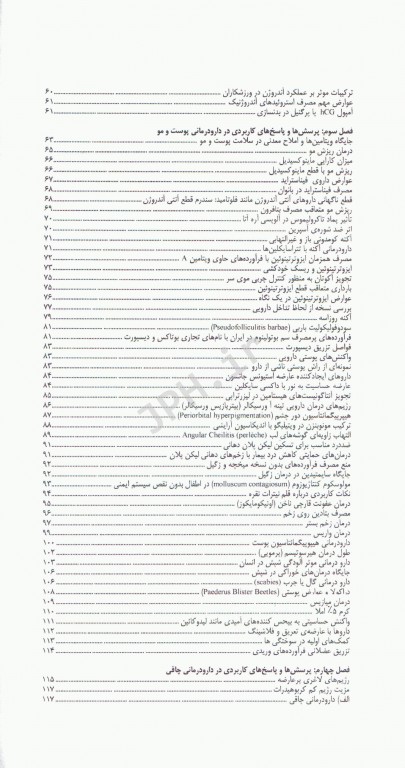 ترکیبات موثر بر عملکرد آندروژن در ورزشکاران ۶۰
عوارض مهم مصرف استروئیدهای آندروژنیک ۶۱
آمپول hCG یا پرگنیل در بدنسازی ۶۱
فصل سوم: پرسش‌ها و پاسخ‌های کاربردی در دارودرمانی پوست و مو
جایگاه ویتامین‌ها و املاح معدنی در سلامت پوست و مو ۶۳
درمان ریزش مو ۶۵
میزان کارایی ماینوکسیدیل ۶۶
ریزش مو با قطع ماینوکسیدیل ۶۶
عوارض داروی فیناستراید ۶۷
مصرف فیناستراید در بانوان ۶۸
قطع ناگهانی داروهای آنتی آندروژن مانند فلوتامید: سندرم قطع آنتی آندروژن ۶۸
ریزش مو متعاقب مصرف بتافرون ۶۹
تأثیر پماد تاکرولیموس در آلوپسی آره آتا ۷۰
اثر ضد شوره‌ی آسپرین ۷۰
آکنه کومدونی باز و غیرالتهابی ۷۱
دارودرمانی آکنه با تتراسایکلین‌ها ۷۱
مصرف همزمان ایزوترتینوئین با فرآورده‌های حاوی ویتامین A ۷۲
ایزوترتینوئین و ریسک خودکشی ۷۳
تجویز آکوتان به منظور کنترل چربی موی سر ۷۵
بارداری متعاقب قطع ایزوترتینوئین ۷۵
عوارض ایزوترتینوئین در یک نگاه ۷۶
بررسی نسخه از لحاظ تداخل دارویی ۷۷
آکنه روزاسه ۷۹
سودوفولیکولیت باربی (Pseudofolliculitis barbae) ۸۱
فرآورده‌های پرمصرف سم بوتولینوم در ایران با نام‌های تجاری بوتاکس و دیسپورت ۸۱
فواصل تزریق دیسپورت ۸۳
واکنش‌های پوستی دارویی ۸۳
نمونه‌ای از راش پوستی ناشی از دارو ۸۳
داروهای ایجادکننده عارضه استیونس جانسون ۸۴
عارضه حساسیت به نور با داکسی سایکلین ۸۴
تجویز آنتاگونیست‌های هیستامین در لیزرتراپی ۸۵
رژیم‌های درمان دارویی تینه آ ورسیکالر (پیتریازیس ورسیکالر) ۸۶
هیپرپیگمانتاسیون دور چشم (Periorbital hyperpigmentation) ۸۷
ترکیب مونوبنزون در ویتیلیگو با اندیکاسیون آرایشی ۸۸
التهاب زاویه‌ای گوشه‌های لب Angular Cheilitis (perlèche) ۸۹
ضددرد مناسب برای تسکین لیکن پلان دهانی ۹۱
درمان‌های حمایتی کاهش درد بیمار با زخم‌های دهانی لیکن پلان ۹۱
منع مصرف فرآورده‌های بدون نسخه میخچه و زگیل ۹۲
جایگاه سایمتیدین در درمان زگیل ۹۲
مولوسکوم کنتاژیوزوم (molluscum contagiosum) در اطفال بدون نقص سیستم ایمنی ۹۳
نکات کاربردی درباره قلم نیترات نقره ۹۴
درمان عفونت قارچی ناخن (اونیکومایکوز) ۹۵
مصرف بتادین روی زخم ۹۶
درمان زخم بستر ۹۷
درمان واریس ۹۹
دارودرمانی هیپوپیگمانتاسیون پوست ۱۰۰
طول درمان هیرسوتیسم (پرمویی) ۱۰۲
دارو درمانی موثر آلودگی شپش در انسان ۱۰۳
جایگاه درمان‌های خوراکی در شپش ۱۰۶
دارو درمانی گال یا جرب (scabies) ۱۰۶
دراکولا و عوارض پوستی (Paederus Blister Beetles) ۱۰۸
درمان میازیس ۱۰۹
کرم ۵٪ املا ۱۱۰
واکنش حساسیتی به بیحس کننده‌های آمیدی مانند لیدوکائین ۱۱۱
داروها با عارضه‌ی تعریق و فلاشینگ ۱۱۲
کمک‌های اولیه در سوختگی ها ۱۱۳
تزریق عضلانی فرآورده‌های وریدی ۱۱۴
فصل چهارم: پرسش‌ها و پاسخ‌های کاربردی در دارودرمانی چاقی
رژیم‌های لاغری پرعارضه ۱۱۵
مزیت رژیم کم کربوهیدرات ۱۱۷
الف) دارودرمانی چاقی ۱۱۷
JPH.ir